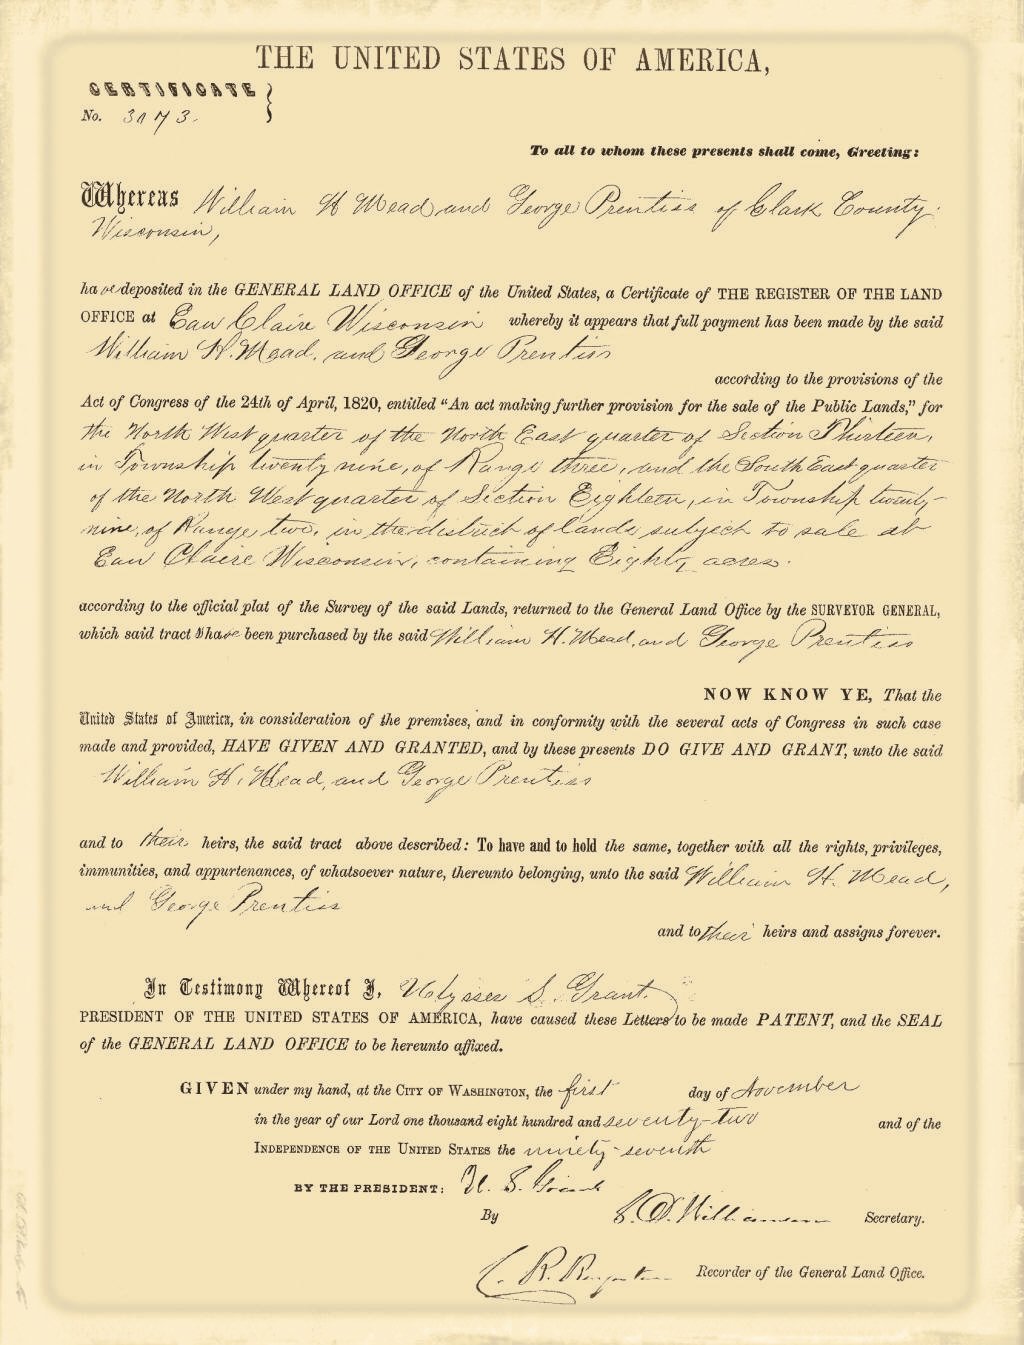 THE UNITED STATES OF AMERICA,
CERTIFICATE
No. 3173.
To all to whom these presents shall come, Greeting:
Whereas William H Mead, and George Prentiss of Clark County
Wisconsin,
have deposited in the GENERAL LAND OFFICE of the United States, a Certificate of THE REGISTER OF THE LAND
OFFICE at Eau Claire Wisconsin whereby it appears that full payment has been made by the said
William H. Mead, and George Prentiss
according to the provisions of the
Act of Congress of the 24th of April, 1820, entitled “An act making further provision for the sale of the Public Lands,” for
the North West quarter of the North East quarter of Section Thirteen,
in Township twenty nine, of Range three, and the South East quarter
of the North West quarter of Section Eighteen, in Township twenty-
nine, of Range, two, in the district of lands subject to sale at
Eau Claire Wisconsin, containing Eighty acres.
according to the official plat of the Survey of the said Lands, returned to the General Land Office by the SURVEYOR GENERAL,
which said tract s have been purchased by the said William H. Mead, and George Prentiss
NOW KNOW YE, That the
United States of America, in consideration of the premises, and in conformity with the several acts of Congress in such case
made and provided, HAVE GIVEN AND GRANTED, and by these presents DO GIVE AND GRANT, unto the said
William H. Mead, and George Prentiss
and to their heirs, the said tract above described: To have and to hold the same, together with all the rights, privileges,
immunities, and appurtenances, of whatsoever nature, thereunto belonging, unto the said William H. Mead,
and George Prentiss
and to their heirs and assigns forever.
In Testimony Whereof I, Ulysses S. Grant
PRESIDENT OF THE UNITED STATES OF AMERICA, have caused these Letters to be made PATENT, and the SEAL
of the GENERAL LAND OFFICE to be hereunto affixed.
GIVEN under my hand, at the CITY OF WASHINGTON, the first day of November
in the year of our Lord one thousand eight hundred and seventy-two and of the
INDEPENDENCE OF THE UNITED STATES the ninety-seventh
BY THE PRESIDENT: U. S. Grant
By S. D. Williamson Secretary.
C. R. Recorder of the General Land Office.